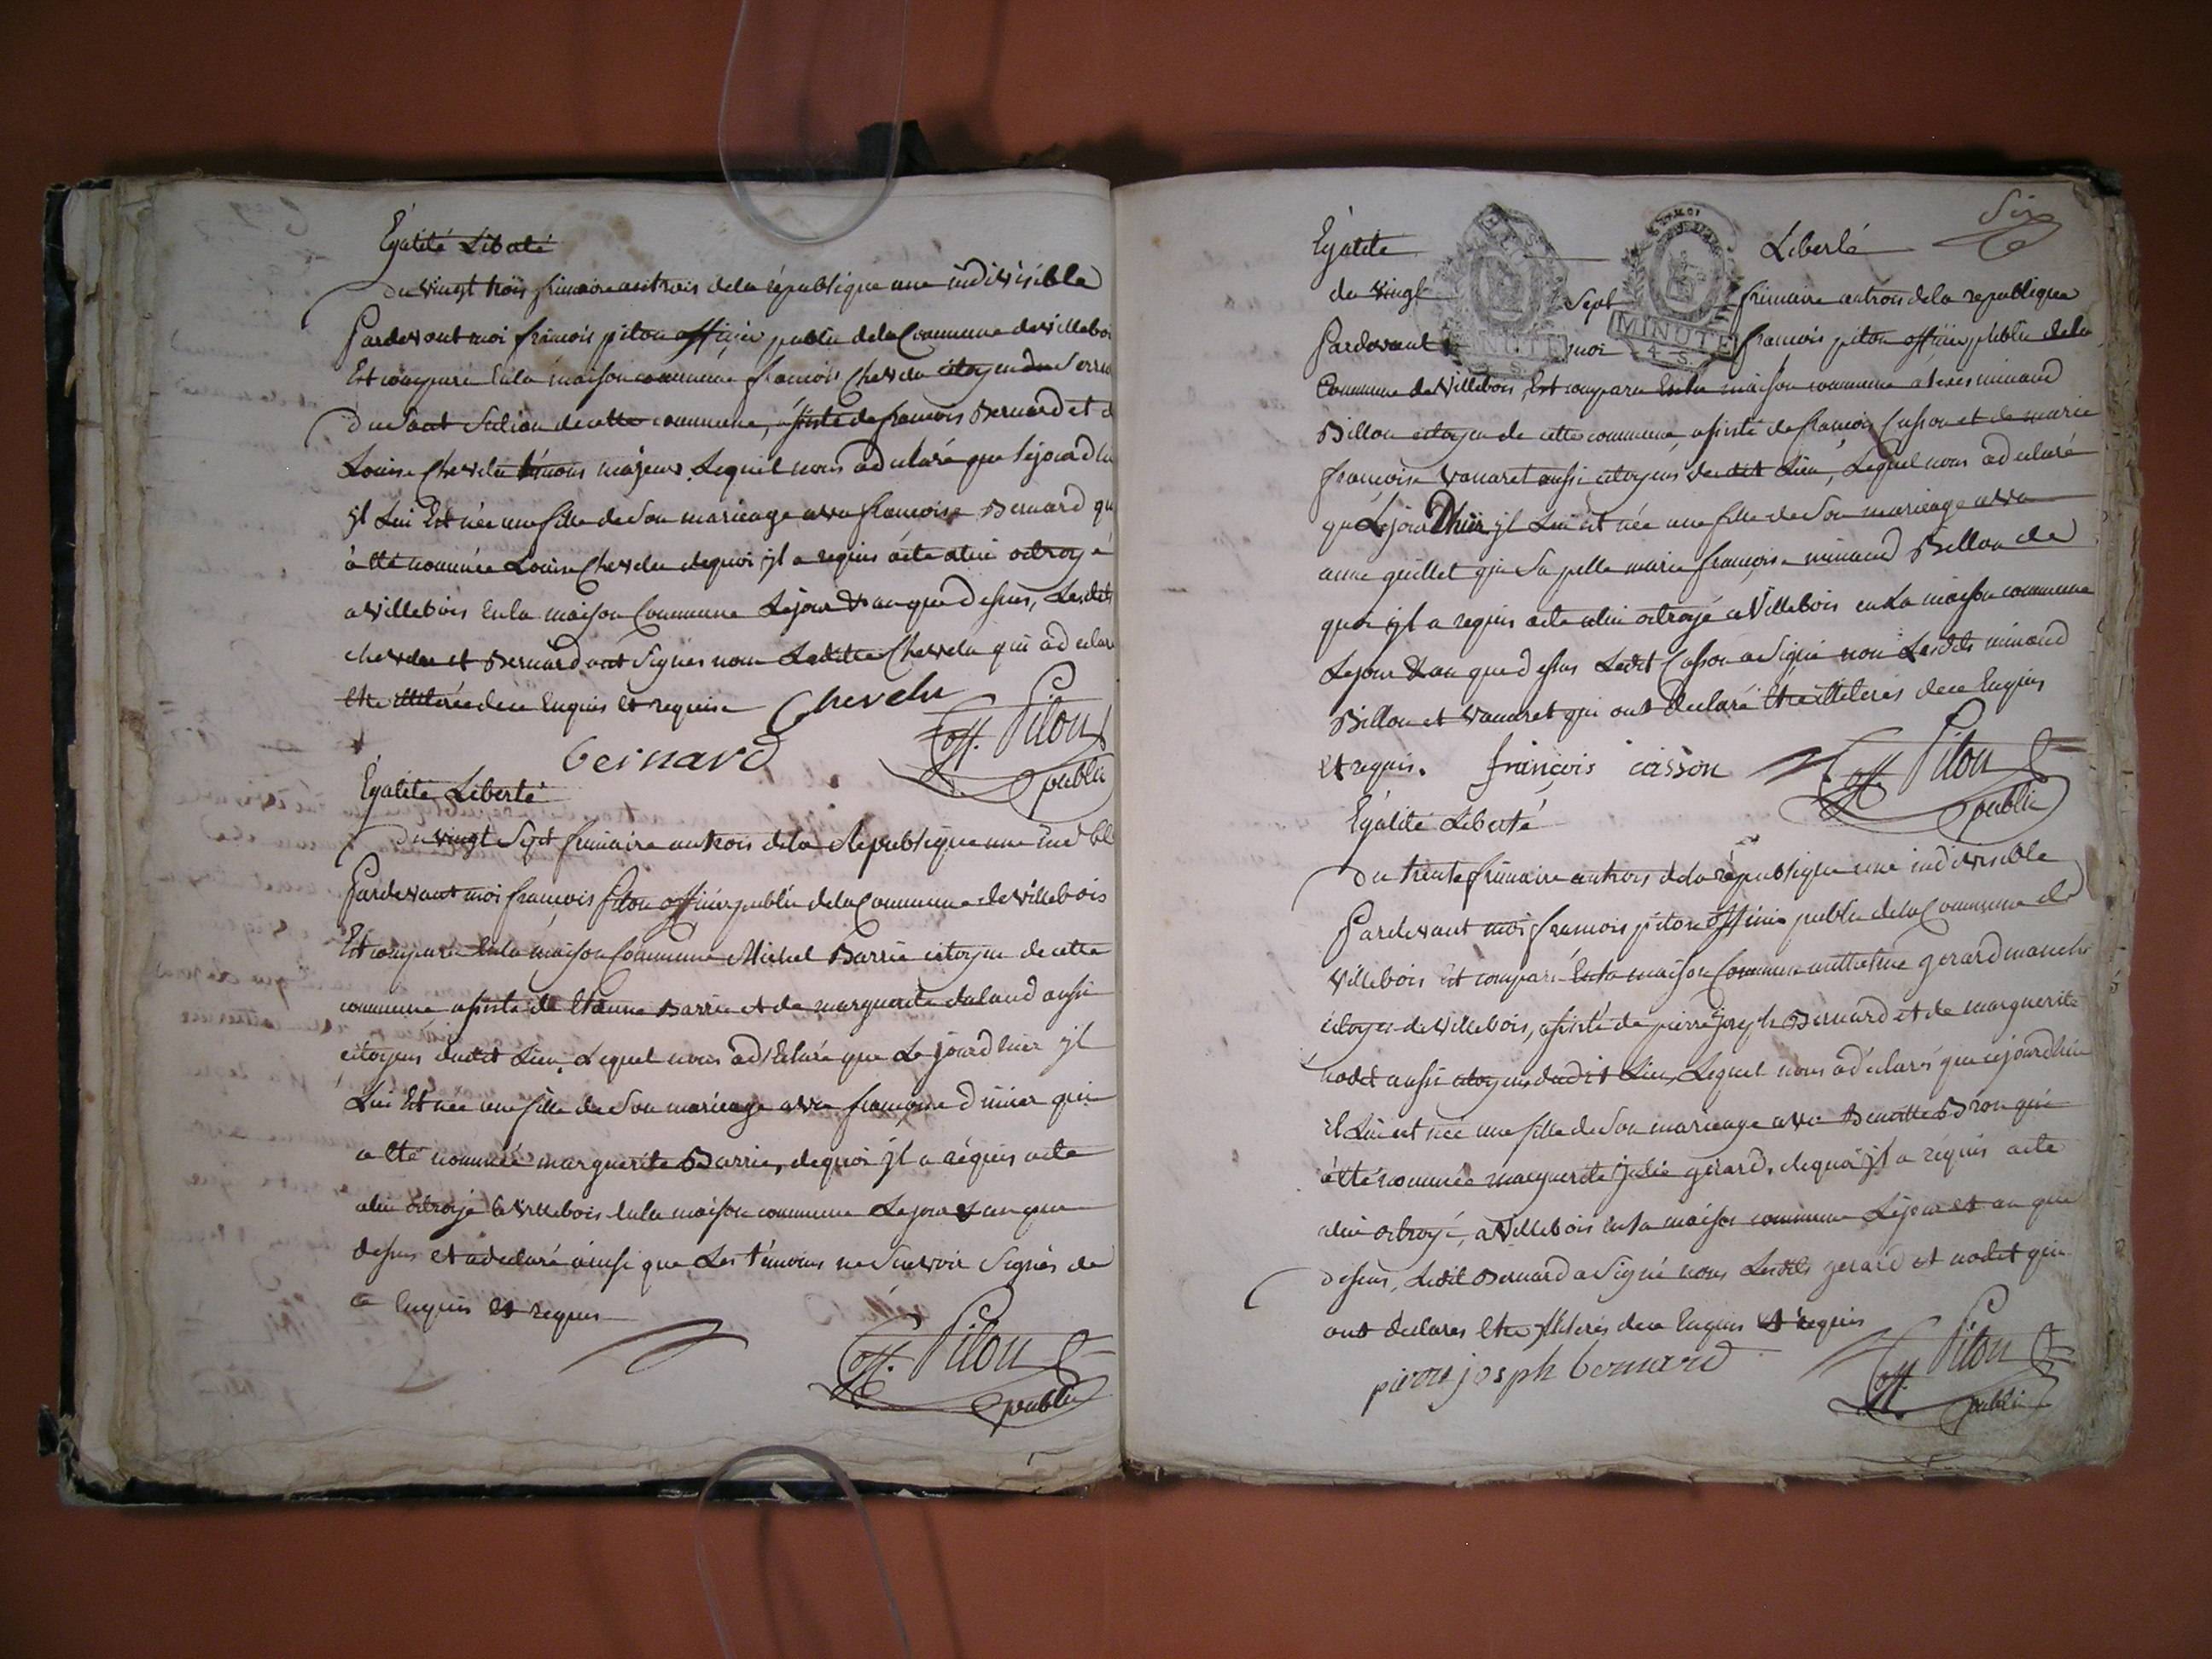 Égalité Liberté
du vingt trois frimaire an trois de la république une indivisible
Pardevant moi francois piton officier public de la Commune de villeboi
Est comparu en la maison commune francois Chevelu citoyen de Serri
du Saut Section de cette commune, assisté de francois Bernard et d
Louise Chevelu témoins majeurs. Lequel nous a déclaré que le jourd'hu
yl Lui Est née une fille de Son marieage avec francoise Bernard qu
à été nommée Louise Chevelu dequoi yl a requis acte a lui octroyé
a villebois en la maison Commune Le jour & an que dessus, Lesdits
chevelu et Bernard ont Signés non Ladite Chevelu qui a déclaré
être illiterée de ce Enquis et requise Chevelu
bernard
off. Piton
public
Égalité Liberté
du vingt Sept frimaire an trois de la République une ind ble
Pardevant moi francois piton officier public de la Commune de villebois
Est comparu en la maison Commune Michel Barrie citoyen de cette
commune assisté de Etienne Barrie et de marguerite chaland aussi
citoyens dudit Lieu. Lequel nous a déclaré que Le jourd hier yl
Lui Est née une fille de Son marieage avec francoise d'nier qui
a été nommée marguerite Barrie, dequoi yl a réquis acte
a lui octroyé a villebois en la maison commune Le jour & an que
dessus et a declaré ainsi que Les témoins ne Scavoir Signés de
ce Enquis et requis
off. Piton
public
Six
Égalité Liberté
MINUTE
MINUTE
4. S.
du vingt Sept frimaire an trois de la republique
Pardevant moi francois piton officier public de la
Commune de villebois, Est comparu En la maison commune minaud
Billon citoyen de cette commune assisté de francois Casson et de marie
francoise vanaret aussi citoyens de dit Lieu, Lequel nous a déclaré
que Le jour D'hier yl Lui est née une fille de Son marieage avec
anne guillet qui Sapelle marie francoise minaud Billon de
quoi yl a requis acte a lui octroyé a Villebois en La maison commune
Le jour & an que dessus Ledit Casson a Signé non Lesdits minaud
Billon et vanaret qui ont declaré être illiteres de ce Enquis
et requis. françois casson
off. Piton
public
Égalité Liberté
du trente frimaire an trois de la république une indivisible
Pardevant moi francois piton officier public de la Commune de
villebois Est comparu En la maison Commune anthelme gerard
citoyen de villebois, assisté de pierre joseph Bernard et de marguerite
nodet aussi citoyens dudit Lieu, Lequel nous a déclaré que cejourdhui
il Lui est née une fille de Son marieage avec Benoitte Bron qui
à été nommée marguerite julie gérard, dequoi yl a réquis acte
a lui octroyé, a villebois en la maison commune Le jour et an que
dessus, Ledit Bernard a Signé nons Lesdits gerard et nodet qui
ont declares être illiterés de ce Enquis et réquis
pierre joseph bernard
off. Piton
public